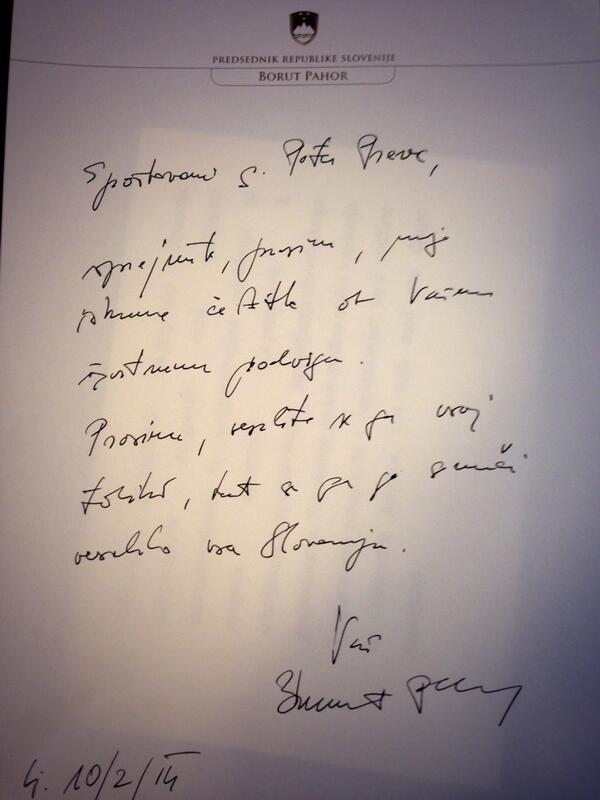 PREDSEDNIK REPUBLIKE SLOVENIJE
BORUT PAHOR
Spoštovani g. Peter Prevc,
sprejmite, prosim, moje
iskrene čestitke ob Vašem
športnem podvigu.
Prosim, veselite se ga vsaj
toliko, kot se ga je sinoči
veselila vsa Slovenija.
Vaš
Borut Pahor
Lj. 10/2/14